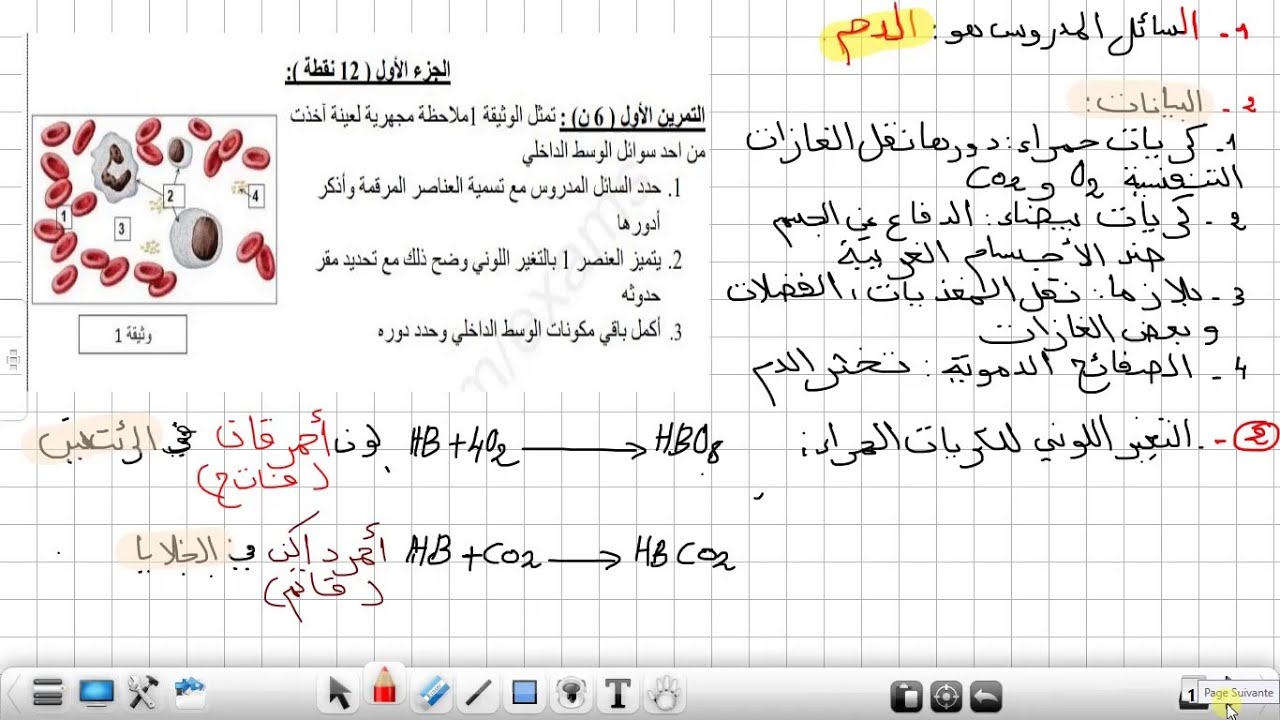 1- السائل المدروس هو: الدم.
2- البيانات:
1- كريات حمراء: دورها نقل الغازات
التنفسية O2 و CO2
2- كريات بيضاء: الدفاع عن الجسم
ضد الأجسام الغريبة
3- بلازما: نقل المغذيات، الفضلات
و بعض الغازات
4- الصفائح الدموية: تخثر الدم
الجزء الأول ( 12 نقطة ):
التمرين الأول ( 6 ن) : تمثل الوثيقة 1ملاحظة مجهرية لعينة أخذت
من احد سوائل الوسط الداخلي
1. حدد السائل المدروس مع تسمية العناصر المرقمة وأذكر
أدورها
2. يتميز العنصر 1 بالتغير اللوني وضح ذلك مع تحديد مقر
حدوثه
3. أكمل باقي مكونات الوسط الداخلي وحدد دوره
1
2
3
4
وثيقة 1
m/exams
2-. التغير اللوني للكريات الحمراء:
HB + 4O2 → HBO8 لون أحمر قان في الرئتين
(فاتح)
HB + CO2 → HBCO2 أحمر داكن في الخلايا
(قاتم)
1
Page Suivante